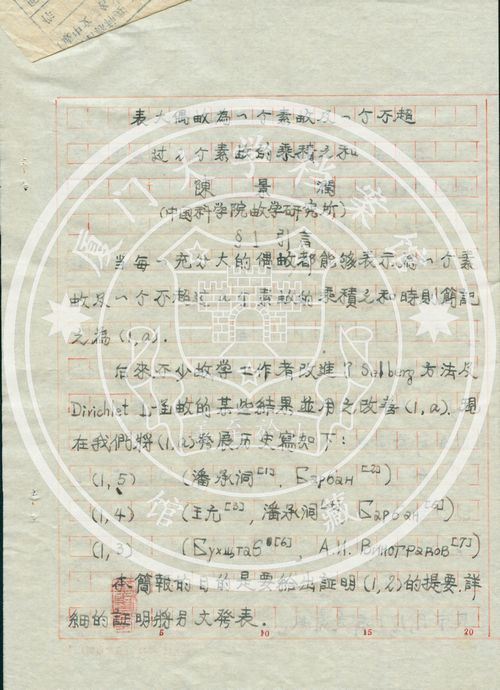 表大偶数為一个素数及一个不超
过2个素数的乘積之和
陳景潤
(中国科学院数学研究所)
§1 引言
当每一充分大的偶数都能够表示為一个素
数及一个不超过a个素数的乘積之和时則簡記
之為(1,a).
后來不少数学工作者改進了Selberg方法与
Dirichlet L-函数的某些結果並用之改善(1,a). 現
在我們將(1,a)發展历史寫如下:
(1,5) (潘承洞[1], Барбан[2])
(1,4) (王元[3], 潘承洞[4], Барбан[5])
(1,3) (Бухштаб[6], А.И. Виноградов[7])
本簡報的目的是要給出証明(1,2)的提要,詳
細的証明將另文發表.
5 10 15 20
厦门大学档案馆藏